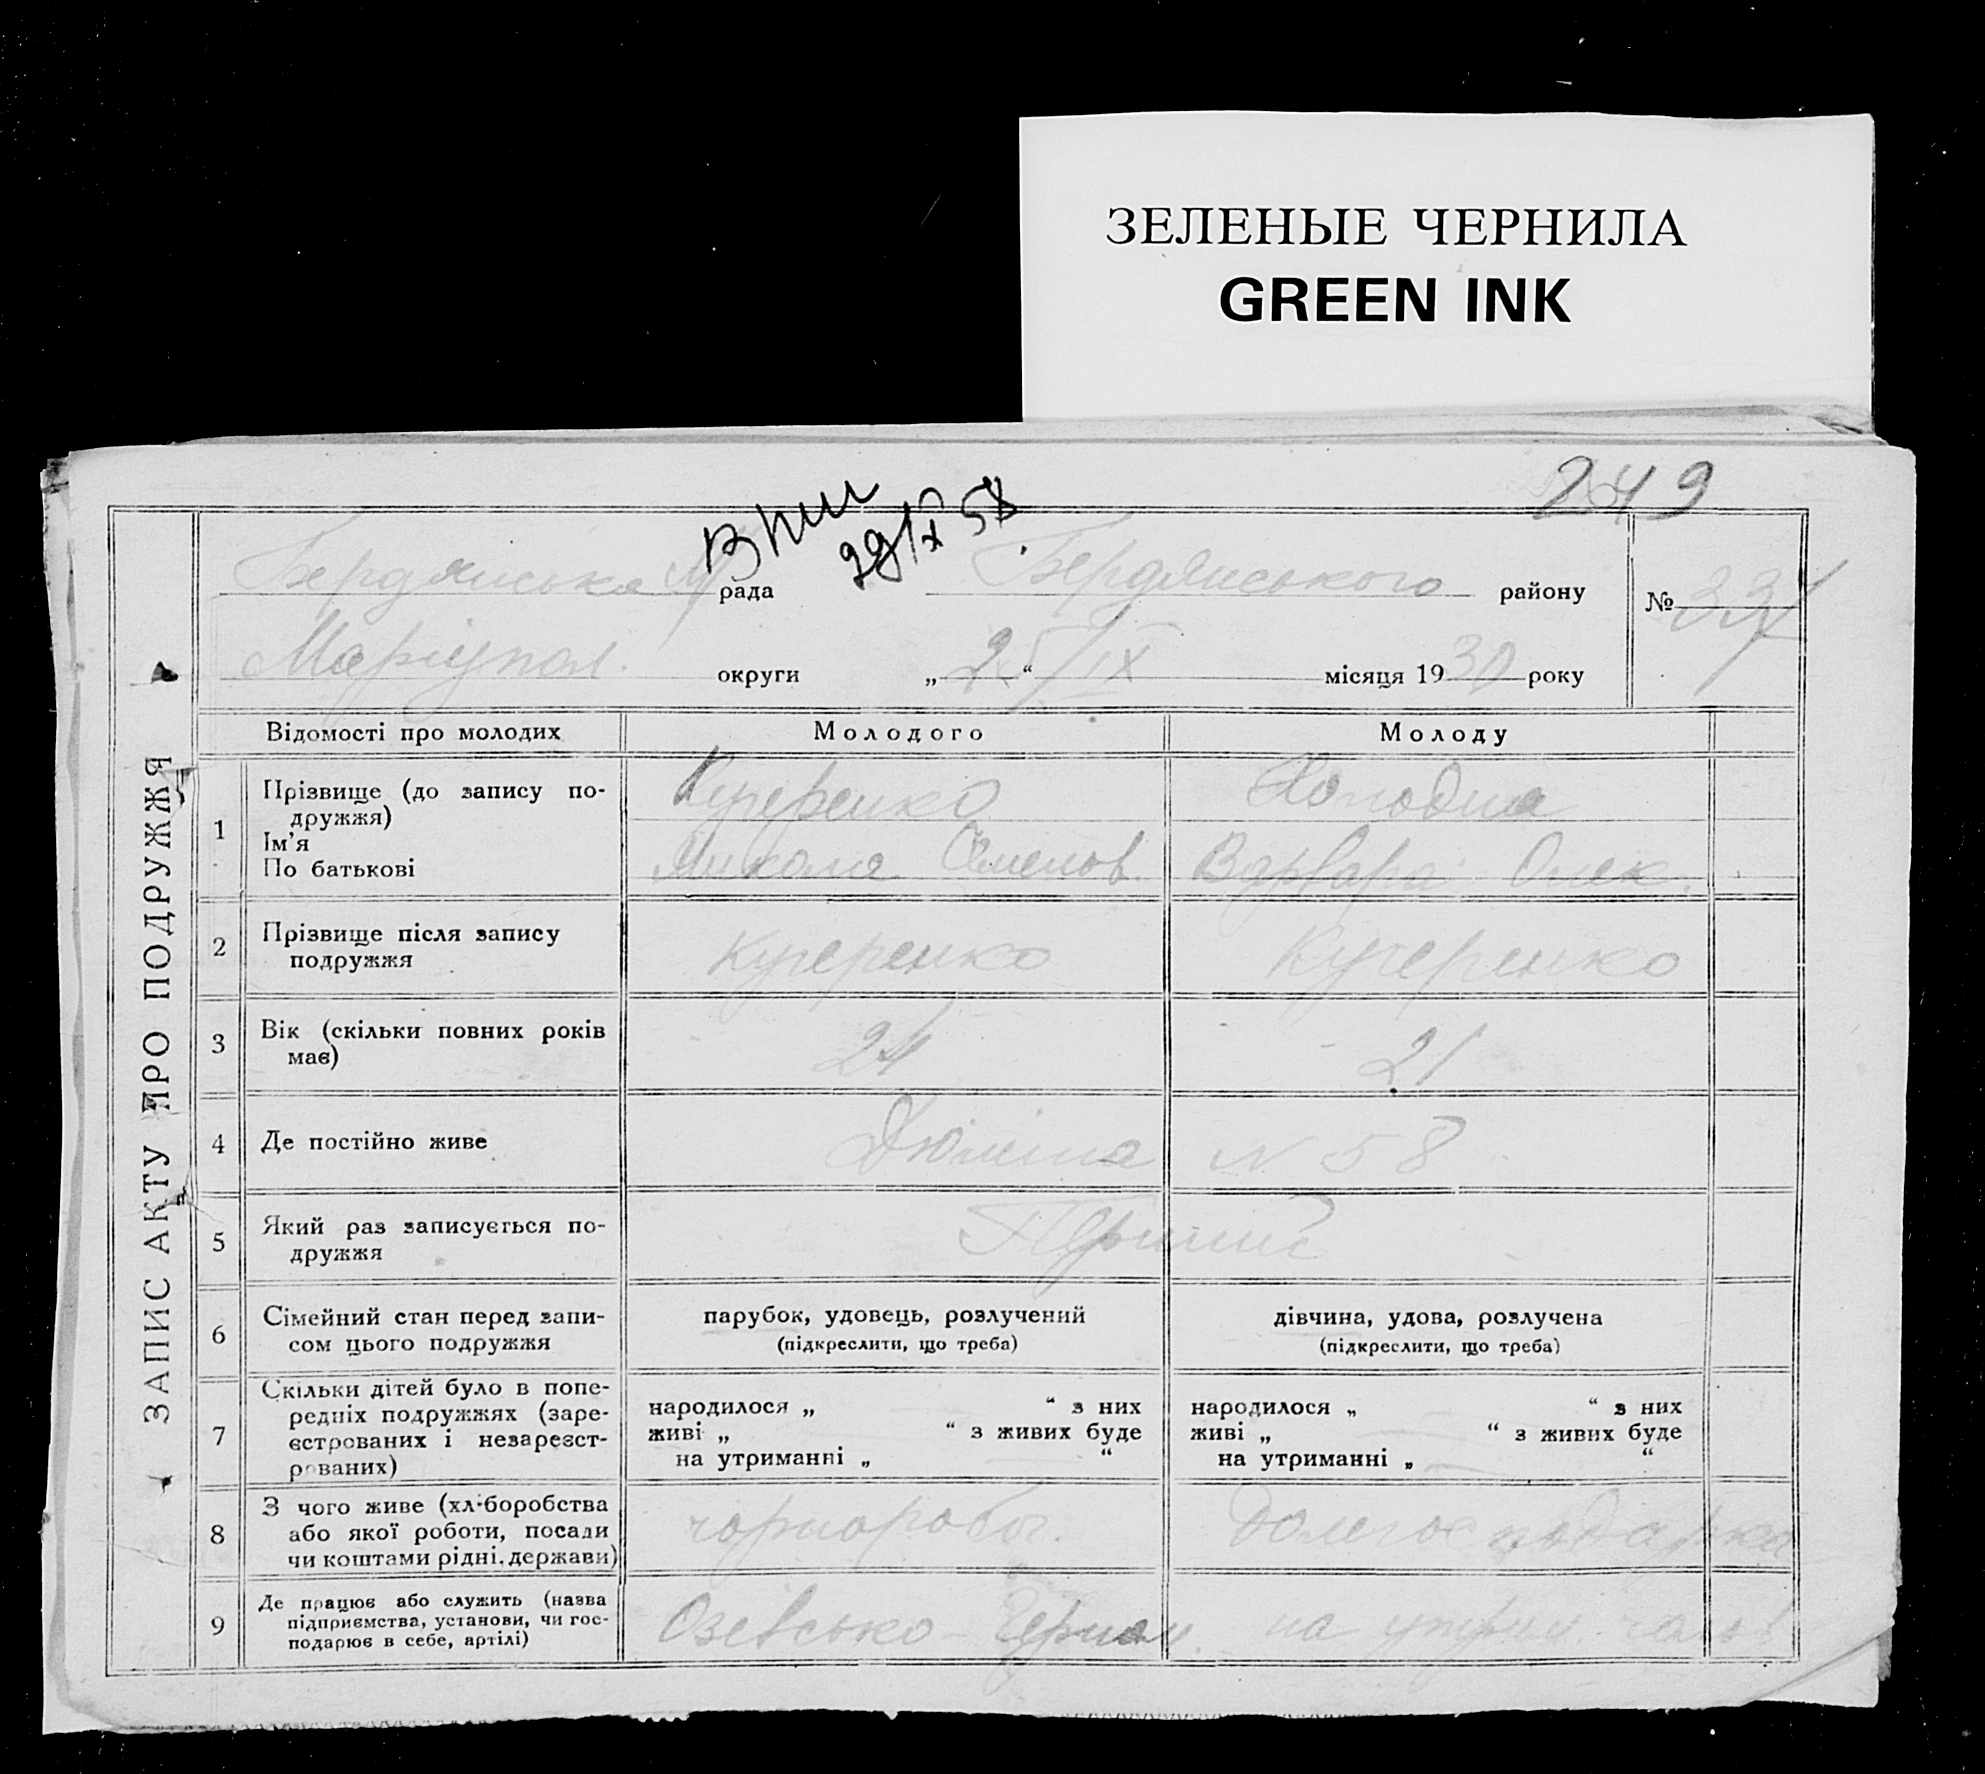 ЗЕЛЕНЫЕ ЧЕРНИЛА
GREEN INK
249
29/IX 58
Бердянська М рада Бердянського району № 
Маріупол. округи „25/IX“ місяця 1930 року
ЗАПИС АКТУ ПРО ПОДРУЖЖЯ
Відомості про молодих Молодого Молоду
1 Прізвище (до запису по-
дружжя)
Ім'я
По батькові
Кучеренко
Микола Семенов.
Холодна
Варвара Олек.
2 Прізвище після запису
подружжя
Кучеренко Кучеренко
3 Вік (скільки повних років
має)
24 21
4 Де постійно живе
N 58
5 Який раз записується по-
дружжя
Перший
6 Сімейний стан перед запи-
сом цього подружжя
парубок, удовець, розлучений
(підкреслити, що треба)
дівчина, удова, розлучена
(підкреслити, що треба)
7 Скільки дітей було в попе-
редніх подружжях (заре-
єстрованих і незареєст-
рованих)
народилося „ “ з них
живі „ “ з живих буде
на утриманні „ “
народилося „ “ з них
живі „ “ з живих буде
на утриманні „ “
8 З чого живе (хліборобства
або якої роботи, посади
чи коштами рідні, держави)
чорнороб.
домогосподарка
9 Де працює або служить (назва
підприємства, установи, чи гос-
подарює в себе, артілі)
на утрим. чолов